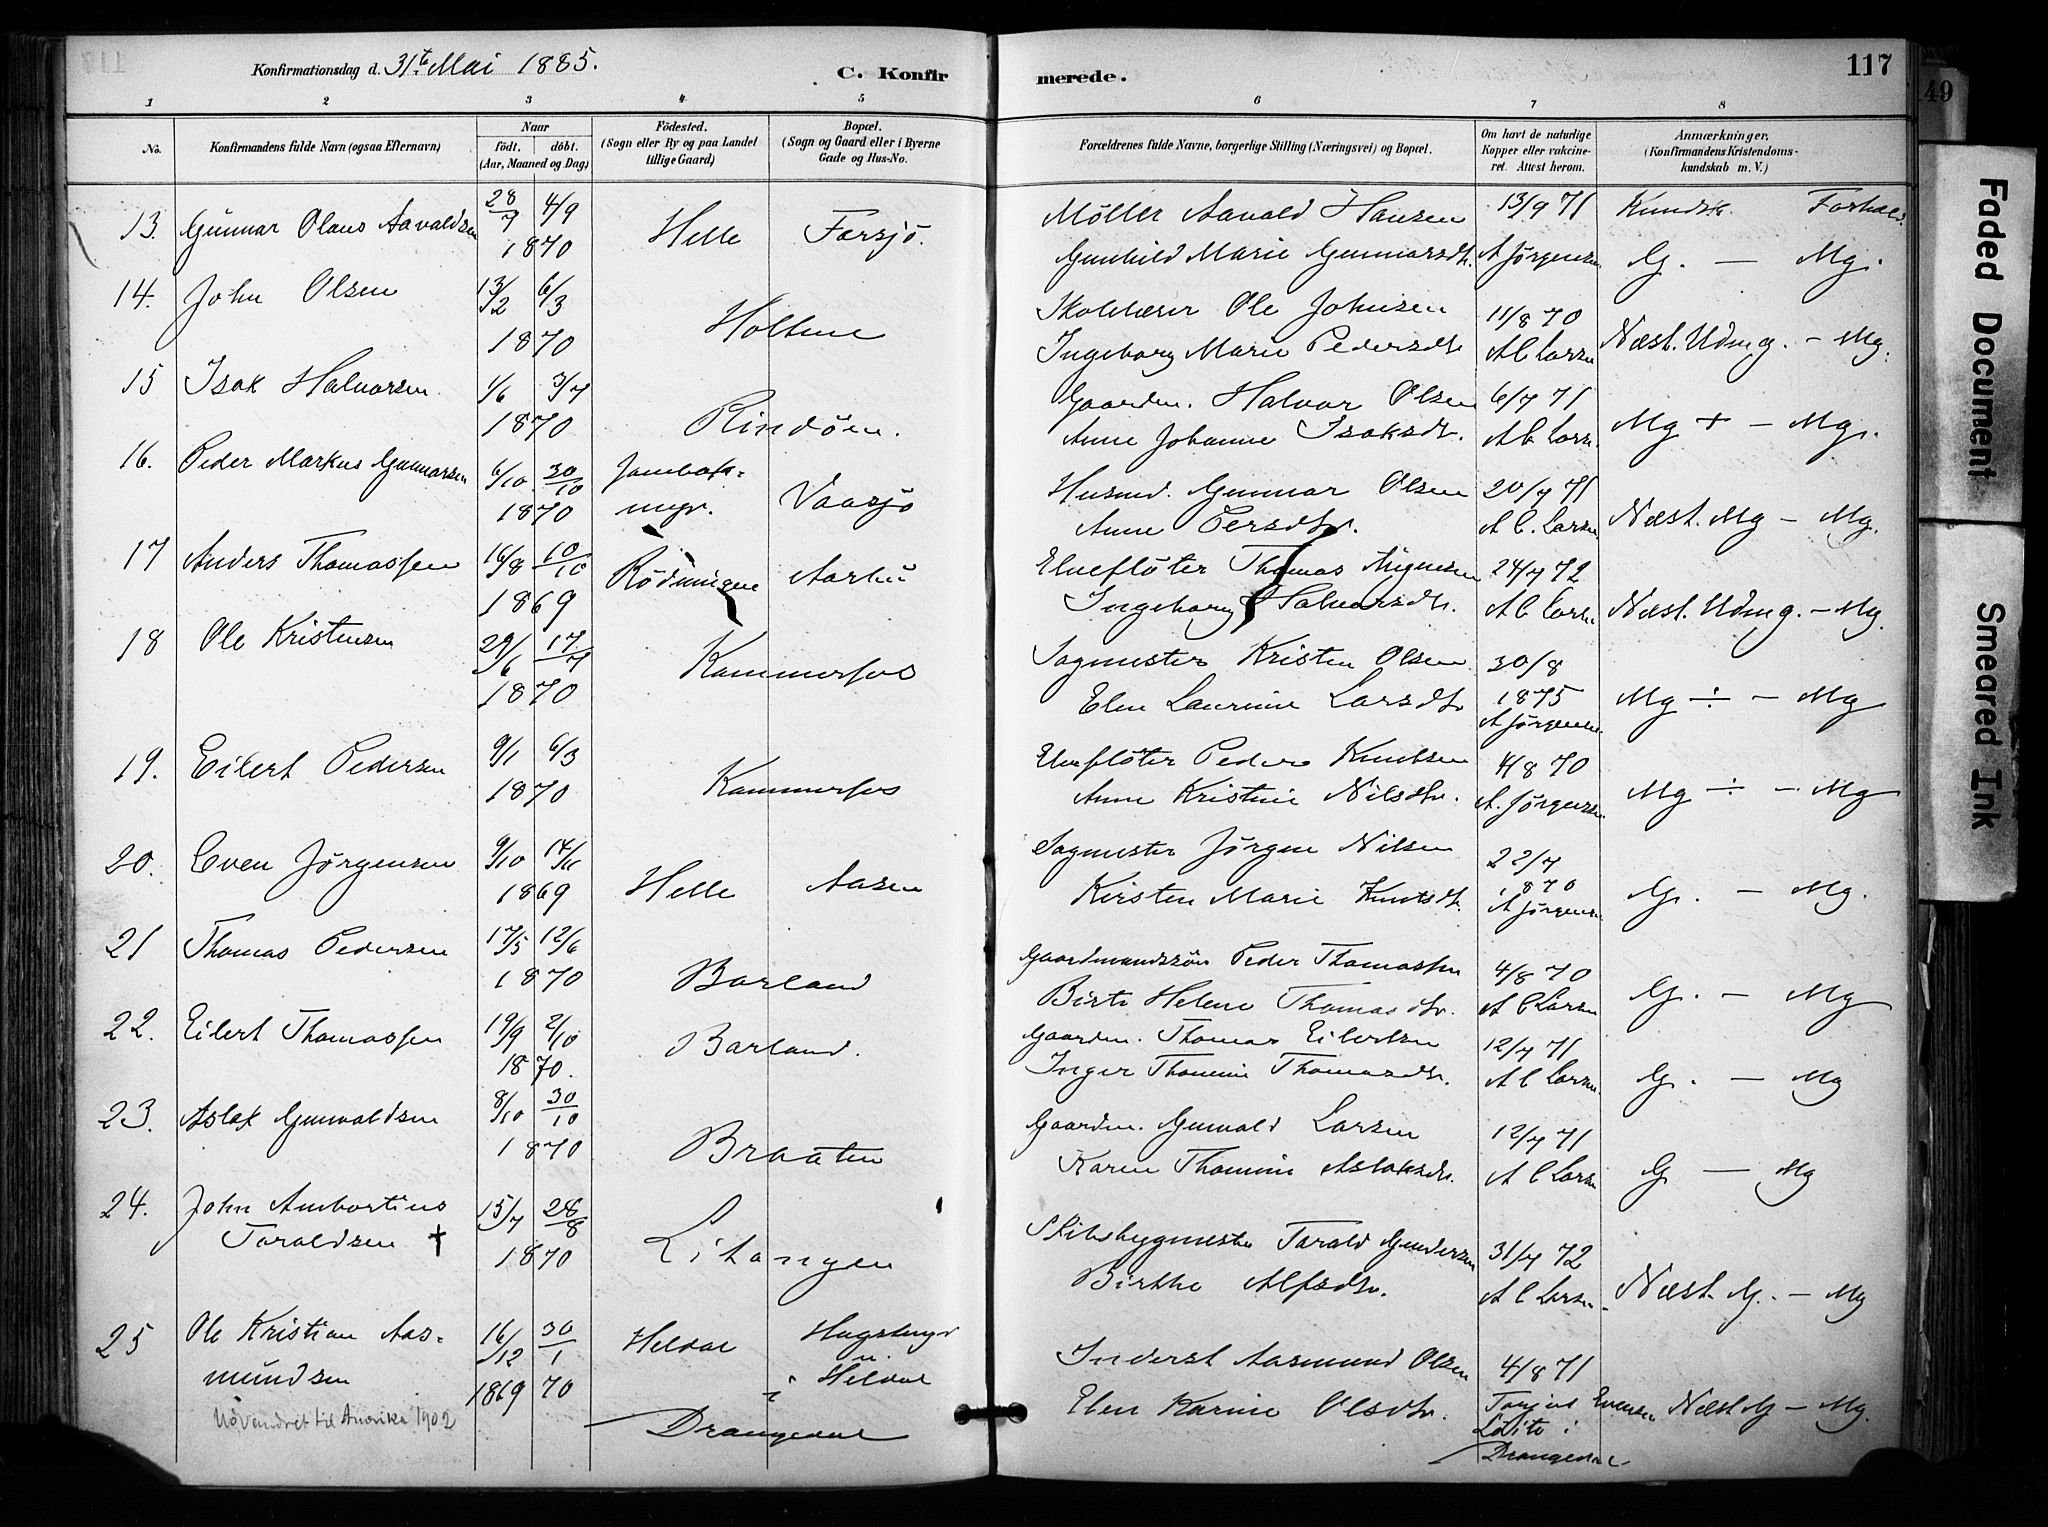 Konfirmationsdag d. 31te Mai 1885.
C. Konfirmerede.
117
49
1 2 3 4 5 6 7 8
No.
Konfirmandens fulde Navn (ogsaa Efternavn)
Naar
født. døbt.
(Aar, Maaned og Dag)
Fødested.
(Sogn eller By og paa Landet
tillige Gaard)
Bopæl.
(Sogn og Gaard eller i Byerne
Gade og Hus-No.
Forældrenes fulde Navne, borgerlige Stilling (Næringsvei) og Bopæl.
Om havt de naturlige
Kopper eller vakcine-
ret. Attest herom.
Anmærkninger.
(Konfirmandens Kristendoms-
kundskab m. V.)
13. Gunnar Olaus Aavaldsen 28/7 4/9 1870 Helle Farsjø.
Møller Aavald Hansen 13/9 71 Kundsk. Forhold
Gunhild Marie Gunnarsdtr. A Jørgensen G. — Mg.
14. John Olsen 13/2 6/3 1870 Holtene
Skolelærer Ole Johnsen 11/8 70
Ingeborg Marie Pedersdtr A C Larsen Næst. Udm g. - Mg.
15 Isak Halvorsen 1/6 3/7 1870 Rindöen.
Gaardm. Halvor Olsen 6/7 71
Anne Johanne Isaksdtr. A C Larsen Mg + - Mg.
16. Peder Markus Gunnarsen 6/10 30/10 1870 Jambakmyr. Vaasjø
Husmd. Gunnar Olsen 20/7 71
Anne Persdtr. A C. Larsen Næst. Mg - Mg.
17 Anders Thomassen 16/8 10/10 1869 Rödningen Aarhus
Elveflöter Thomas 24/7 72
Ingeborg Halvorsdtr. A C Larsen Næst. Udm g. - Mg.
18 Ole Kristensen 29/6 17/7 1870 Kammerfos
Sagmester Kristen Olsen 30/8
Elen Laurine Larsdtr 1875 Mg ÷ - Mg
A Jørgensen
19. Eilert Pedersen 9/1 6/3 1870 Kammerfos
Elveflöter Peder Knutsen 4/8 70
Anne Kristine Nilsdtr. A. Jørgensen Mg ÷ - Mg
20. Even Jørgensen 9/10 14/11 1869 Helle Aasen
Sagmester Jörgen Nilsen 22/7
Kirsten Marie Knutsdtr. 1870 G. - Mg.
A Jørgensen
21 Thomas Pedersen 17/5 12/6 1870 Barland
Gaardmandssön Peder Thomassen 4/8 70
Birte Helene Thomasdtr. A C Larsen G. - Mg
22. Eilert Thomassen 19/9 2/10 1870. Barland.
Gaardm. Thomas Eilertsen 12/7 71
Inger Thomine Thomasdtr. A C Larsen. G. - Mg
23. Aslak Gunvaldsen 8/10 30/10 1870 Braaten
Gaardm. Gunvald Larsen 12/7 71
Karen Thomine Aslaksdtr. A C Larsen G — Mg
24. John Ambortius
Taraldsen † 15/7 28/8 1870 Litangen
Skibsbygmester Tarald Gundersen 31/7 72
Birthe Alfsdtr. A C Larsen Næst. G. - Mg
25 Ole Kristian Aas-
mundsen 16/12 30/1 1869 70 Heldal
u. Heldal
i
Drangedal
Inderst Aasmund Olsen 4/8 71
Elen Karine Olsdtr. Tarjus Evensen Næst G - Mg.
i
Drangedal
Udvandret til Amerika 1902
Faded Document
Smeared Ink